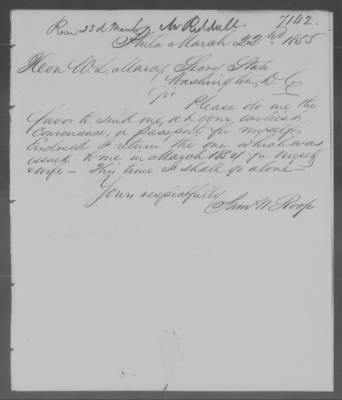 7142.
Recd 23d March Mr Riddall
Phila March 22nd 1855
Hon W. L. Marcy Secy State
Washington, D. C
Sir
Please do me the
favor to send me, at your earliest
Convenience, a passport for myself
Enclosed I return the one which was
issued to me in March 1854 for myself
& wife – This time I shall go alone –
Yours respectfully
Saml W Roop